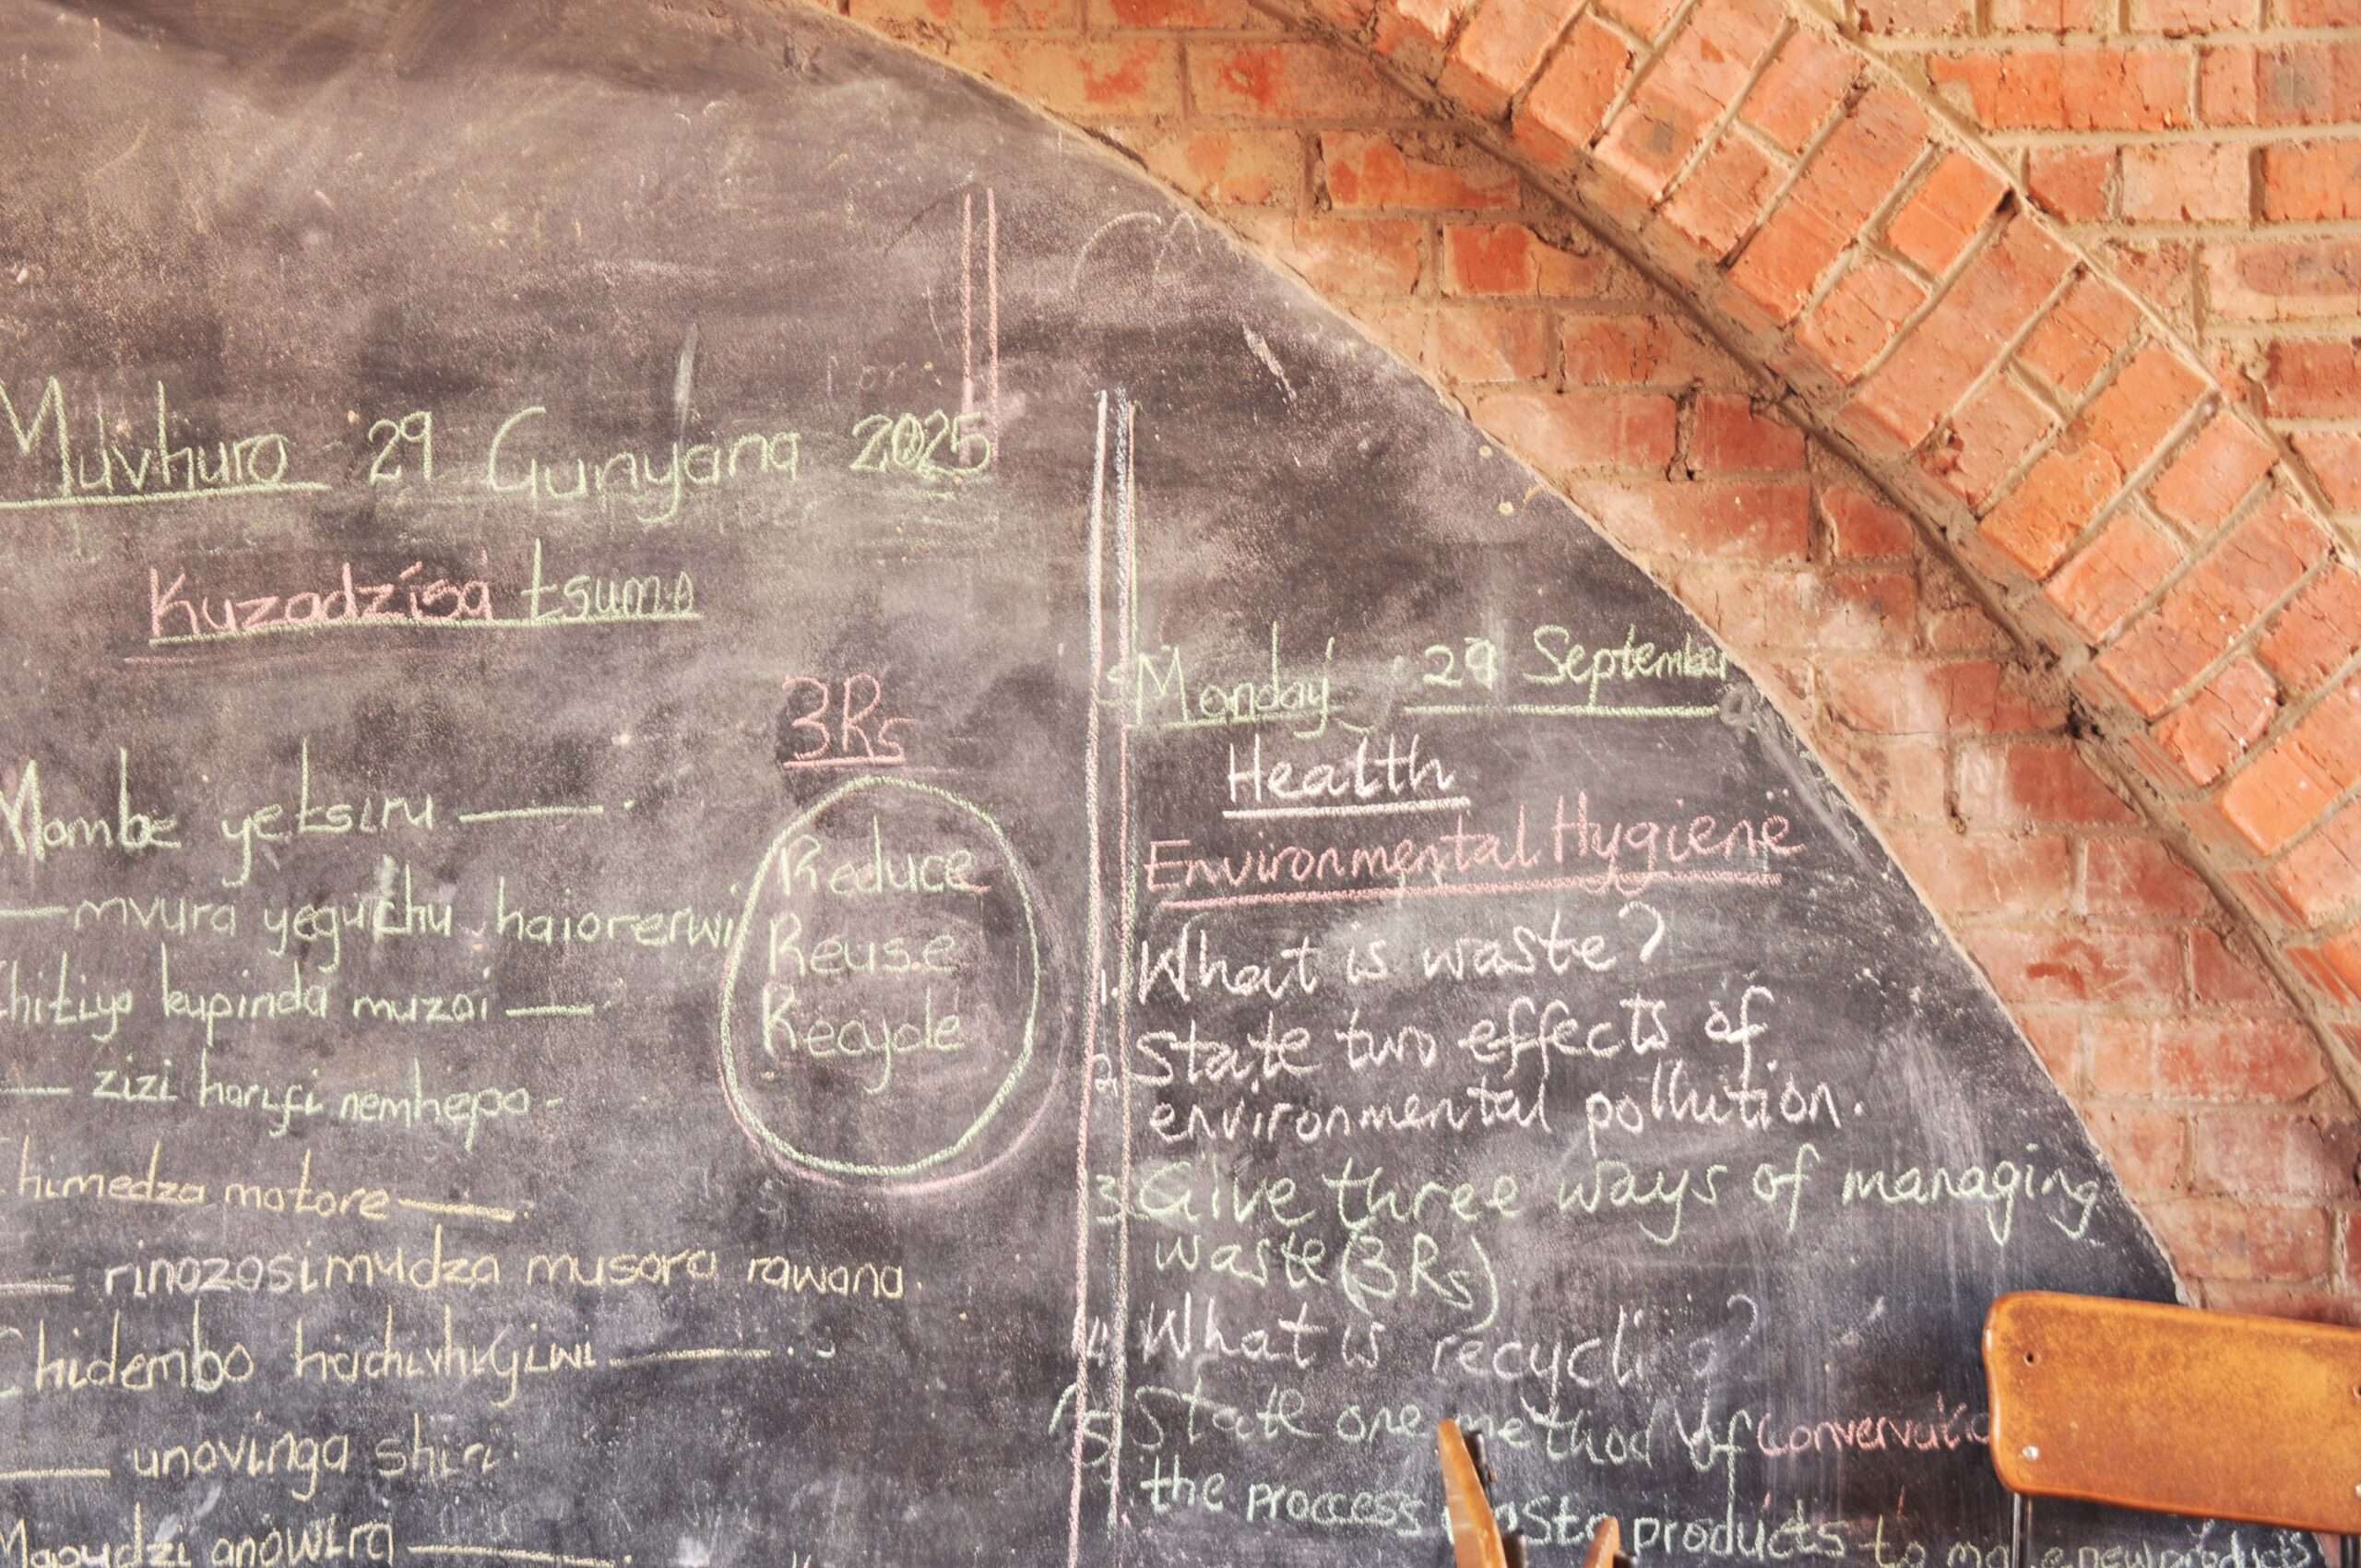 Muvhuro 29 Gunyana 2025
Kuzadzisa tsumo
Mombe yetsiru ———.
—mvura yeguchu, haiorerwi
Chitiyo kupinda muzai ———
— zizi harifi nemhepo.
Chimedza matore ———.
— rinozosimudza musoro rawana.
Chidembo hachivhiyiwi ———.
——— unovinga shiri.
Mapudzi anowira ———.
3Rs
Reduce
Reuse
Recycle
Monday 29 September
Health
Environmental Hygiene
1. What is waste?
2. State two effects of
environmental pollution.
3. Give three ways of managing
waste (3Rs)
4. What is
5. State one method of
the proccess products to new products